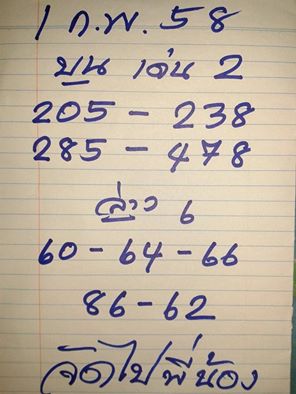 1 ก.พ. 58
บน เด่น 2
205 - 238
285 - 478
ล่าง 6
60 - 64 - 66
86 - 62
จัดไปพี่น้อง